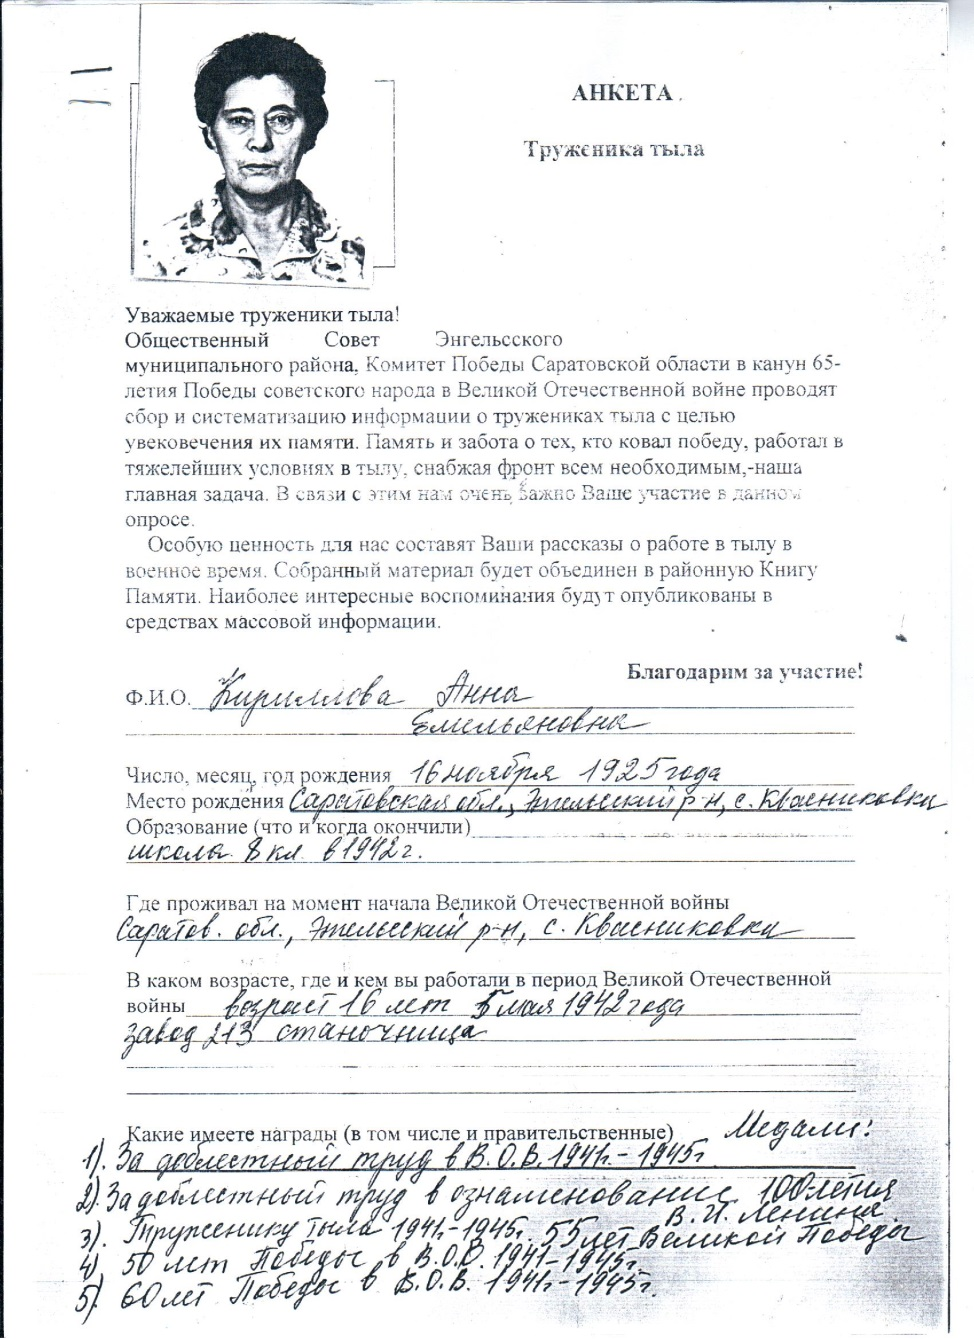 АНКЕТА
Труженика тыла
Уважаемые труженики тыла!
Общественный Совет Энгельсского
муниципального района, Комитет Победы Саратовской области в канун 65-
летия Победы советского народа в Великой Отечественной войне проводят
сбор и систематизацию информации о тружениках тыла с целью
увековечения их памяти. Память и забота о тех, кто ковал победу, работал в
тяжелейших условиях в тылу, снабжая фронт всем необходимым,-наша
главная задача. В связи с этим нам очень важно Ваше участие в данном
опросе.
Особую ценность для нас составят Ваши рассказы о работе в тылу в
военное время. Собранный материал будет объединен в районную Книгу
Памяти. Наиболее интересные воспоминания будут опубликованы в
средствах массовой информации.
Благодарим за участие!
Ф.И.О. Кириллова Анна
Емельяновна
Число, месяц, год рождения 16 ноября 1925 года
Место рождения Саратовская обл., Энгельсский р-н, с. Квасниковка
Образование (что и когда окончили)
школа 8 кл в 1942 г.
Где проживал на момент начала Великой Отечественной войны
Саратов. обл., Энгельсский р-н, с. Квасниковка
В каком возрасте, где и кем вы работали в период Великой Отечественной
войны возраст 16 лет 5 мая 1942 года
завод 213 станочница
Какие имеете награды (в том числе и правительственные) Медали:
1). За доблестный труд в В.О.В. 1941г. - 1945г
2). За доблестный труд в ознаменование 100 летия
В. И. Ленина
3). Труженику тыла 1941г.-1945г. 55 лет Великой Победы
4) 50 лет Победы в В.О.В. 1941-1945г.
5). 60 лет Победы в В.О.В. 1941г. - 1945г.